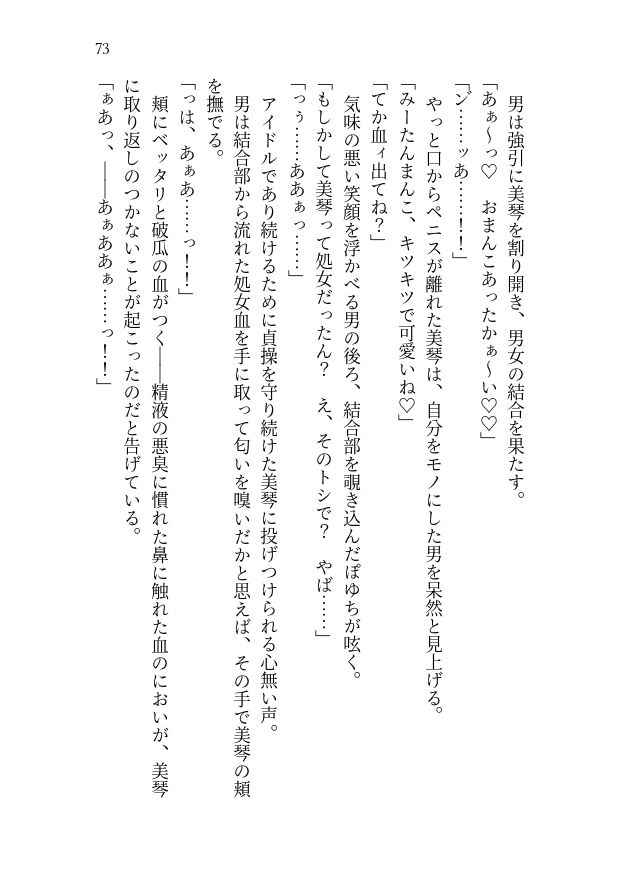 73
男は強引に美琴を割り開き、男女の結合を果たす。
「あぁ～っ♡　おまんこあったかぁ～い♡♡」
「ン゛……ッあ……！！」
やっと口からペニスが離れた美琴は、自分をモノにした男を呆然と見上げる。
「みーたんまんこ、キツキツで可愛いね♡」
「てか血ィ出てね？」
気味の悪い笑顔を浮かべる男の後ろ、結合部を覗き込んだぽゆちが呟く。
「もしかして美琴って処女だったん？　え、そのトシで？　やば……」
「っぅ……ああぁっ……」
アイドルであり続けるために貞操を守り続けた美琴に投げつけられる心無い声。
男は結合部から流れた処女血を手に取って匂いを嗅いだかと思えば、その手で美琴の頬
を撫でる。
「っは、あぁあ……っ！！」
頬にベッタリと破瓜の血がつく――精液の悪臭に慣れた鼻に触れた血のにおいが、美琴
に取り返しのつかないことが起こったのだと告げている。
「ぁあっ、――あぁああぁ……っ！！」